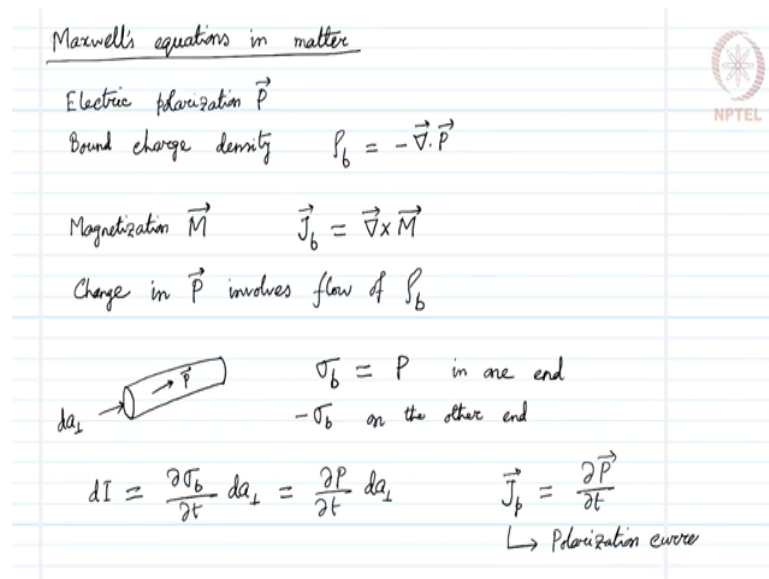 Maxwell's equations in matter
NPTEL
Electric polarization P⃗
Bound charge density ρ_b = -∇⃗.P⃗
Magnetization M⃗ J⃗_b = ∇⃗×M⃗
Change in P⃗ involves flow of ρ_b
P⃗
σ_b = P in one end
da⊥
-σ_b on the other end
dI = ∂σ_b/∂t da⊥ = ∂P/∂t da⊥ J⃗_p = ∂P⃗/∂t
↳ Polarization curre